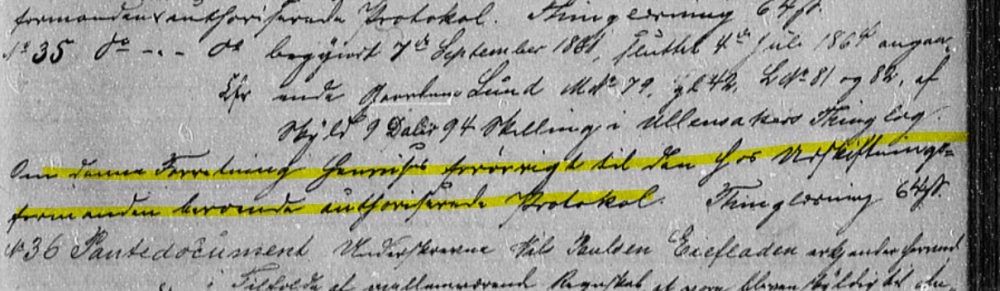 formandens authoriserede Protokol. Thinglæsning 64 ß.
No 35 Do -..- Do begyndt 7de September 1861, sluttet 4de Juli 1864 angaa-
ende Gaarden Lund M No 79, gl 42, L No 81 og 82, af
Skyld 9 Daler 94 Skilling i Ullensakers Thinglag.
Om denne Forretning henvises forøvrigt til den hos Udskiftnings-
formanden beroende authoriserede Protokol. Thinglæsning 64 ß.
No 36 Pantedocument Undertegnede Nils Paulsen Eiefladen erkjender herved
i Tilfælde af mellemværende Regnskab at være bleven skyldig til